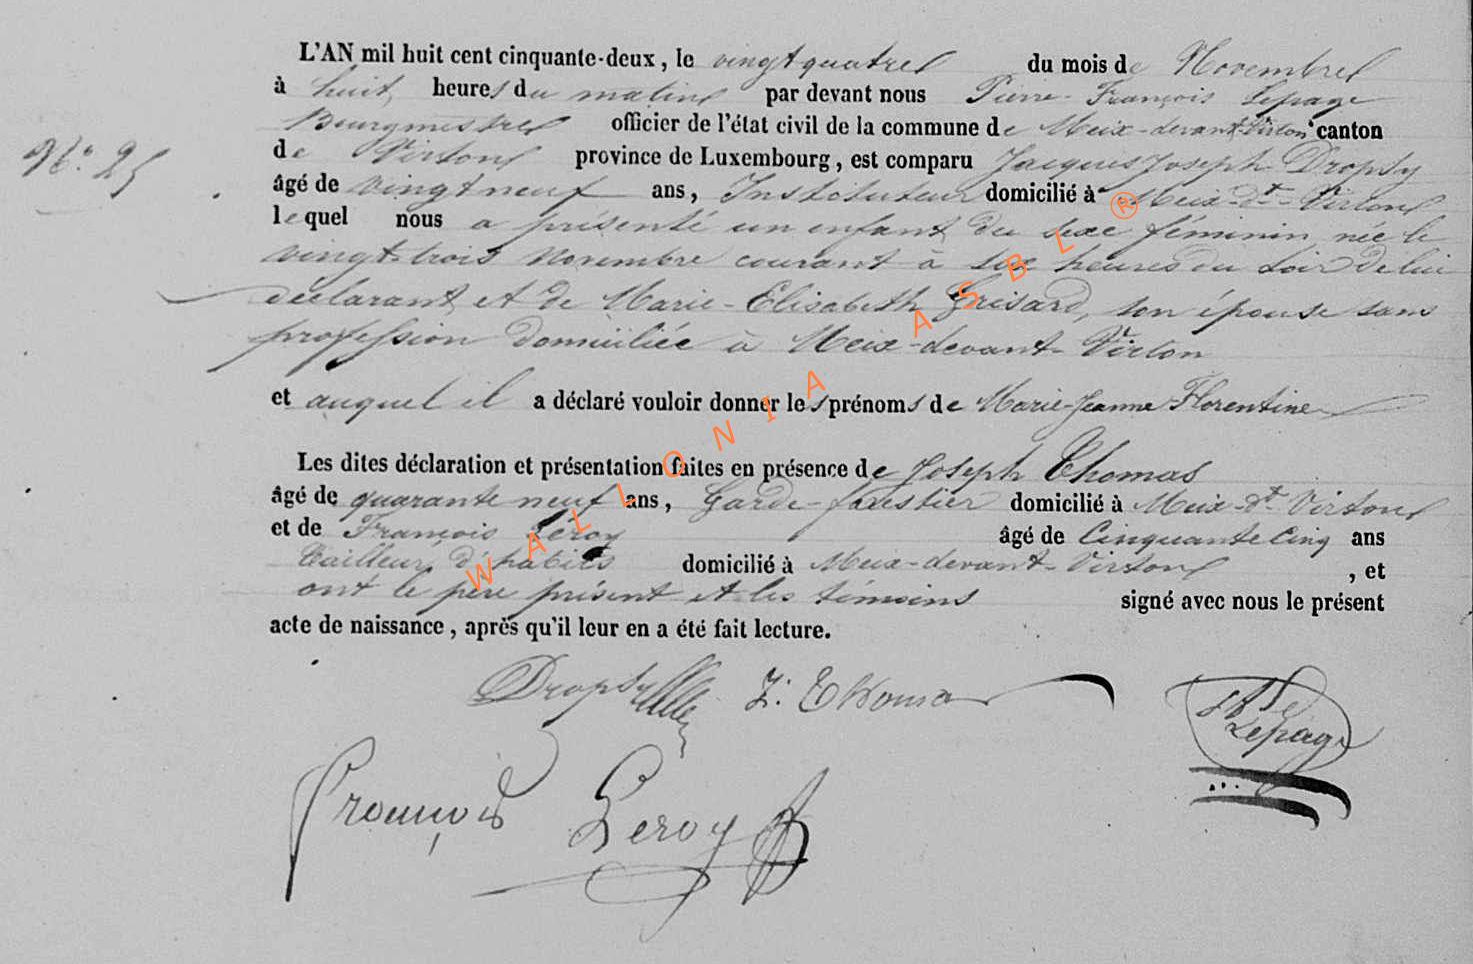 L'AN mil huit cent cinquante-deux, le vingt quatre du mois de Novembre
à huit heures du matin par devant nous Pierre-François Lepage
Bourgmestre officier de l'état civil de la commune de Meix-devant-Virton canton
N.° 25
de Virton province de Luxembourg, est comparu Jacques Joseph Dropsy
âgé de vingt neuf ans, Instituteur domicilié à Meix-dt-Virton
lequel nous a présenté un enfant du sexe féminin née le
vingt-trois Novembre courant à six heures du soir de lui
déclarant et de Marie-Elisabeth Grisard, son épouse sans
profession domiciliée à Meix-devant-Virton
et auquel il a déclaré vouloir donner les prénoms de Marie-Jeanne Florentine
Les dites déclaration et présentation faites en présence de Joseph Thomas
âgé de quarante neuf ans, Garde-forestier domicilié à Meix-dt-Virton
et de François Léroy âgé de Cinquante Cinq ans
tailleur d'habits domicilié à Meix-devant-Virton, et
ont le père présent et les témoins signé avec nous le présent
acte de naissance, après qu'il leur en a été fait lecture.
Dropsy J. Thomas
Lepage
François Leroy
WALLONIA ASBL ®